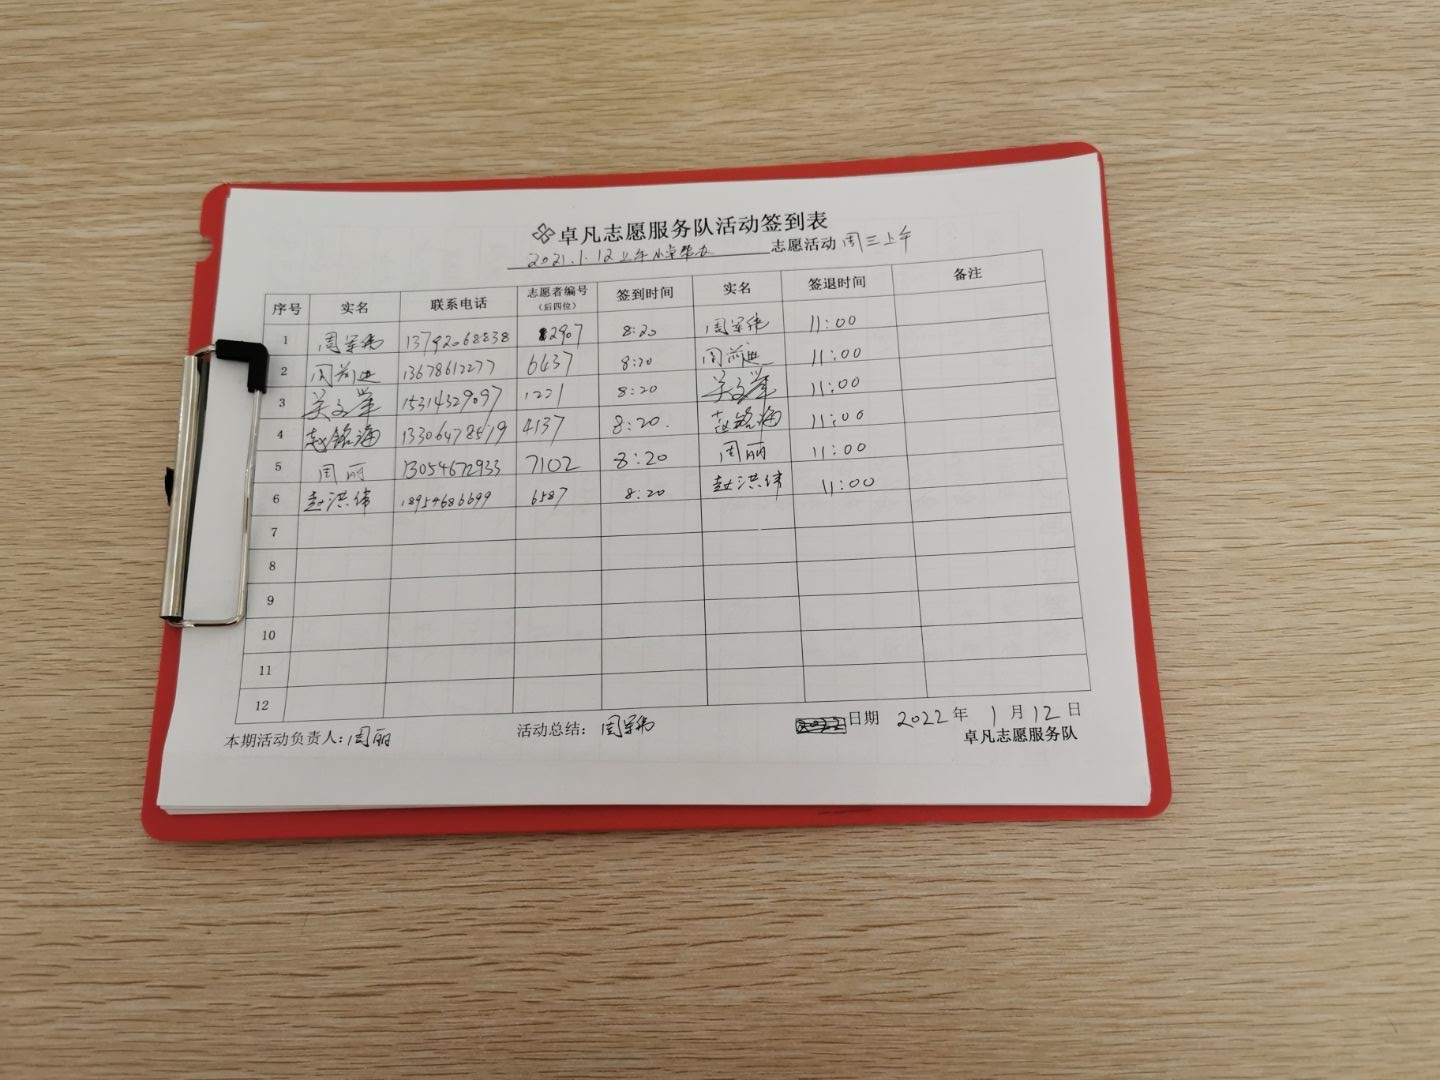 卓凡志愿服务队活动签到表
2021.1.12上午 志愿活动 周三上午
序号 实名 联系电话 志愿者编号（后四位） 签到时间 实名 签退时间 备注
1 周军伟 13792068838 2907 8:20 周军伟 11:00
2 周前进 13678612277 6437 8:20 周前进 11:00
3 吴文举 15314329097 1221 8:20 吴文举 11:00
4 赵铭海 13306478519 4137 8:20. 赵铭海 11:00
5 周丽 13054672933 7102 8:20 周丽 11:00
6 赵洪伟 18954686699 6587 8:20 赵洪伟 11:00
7
8
9
10
11
12
本期活动负责人：周丽 活动总结：周军伟 日期 2022年1月12日
卓凡志愿服务队